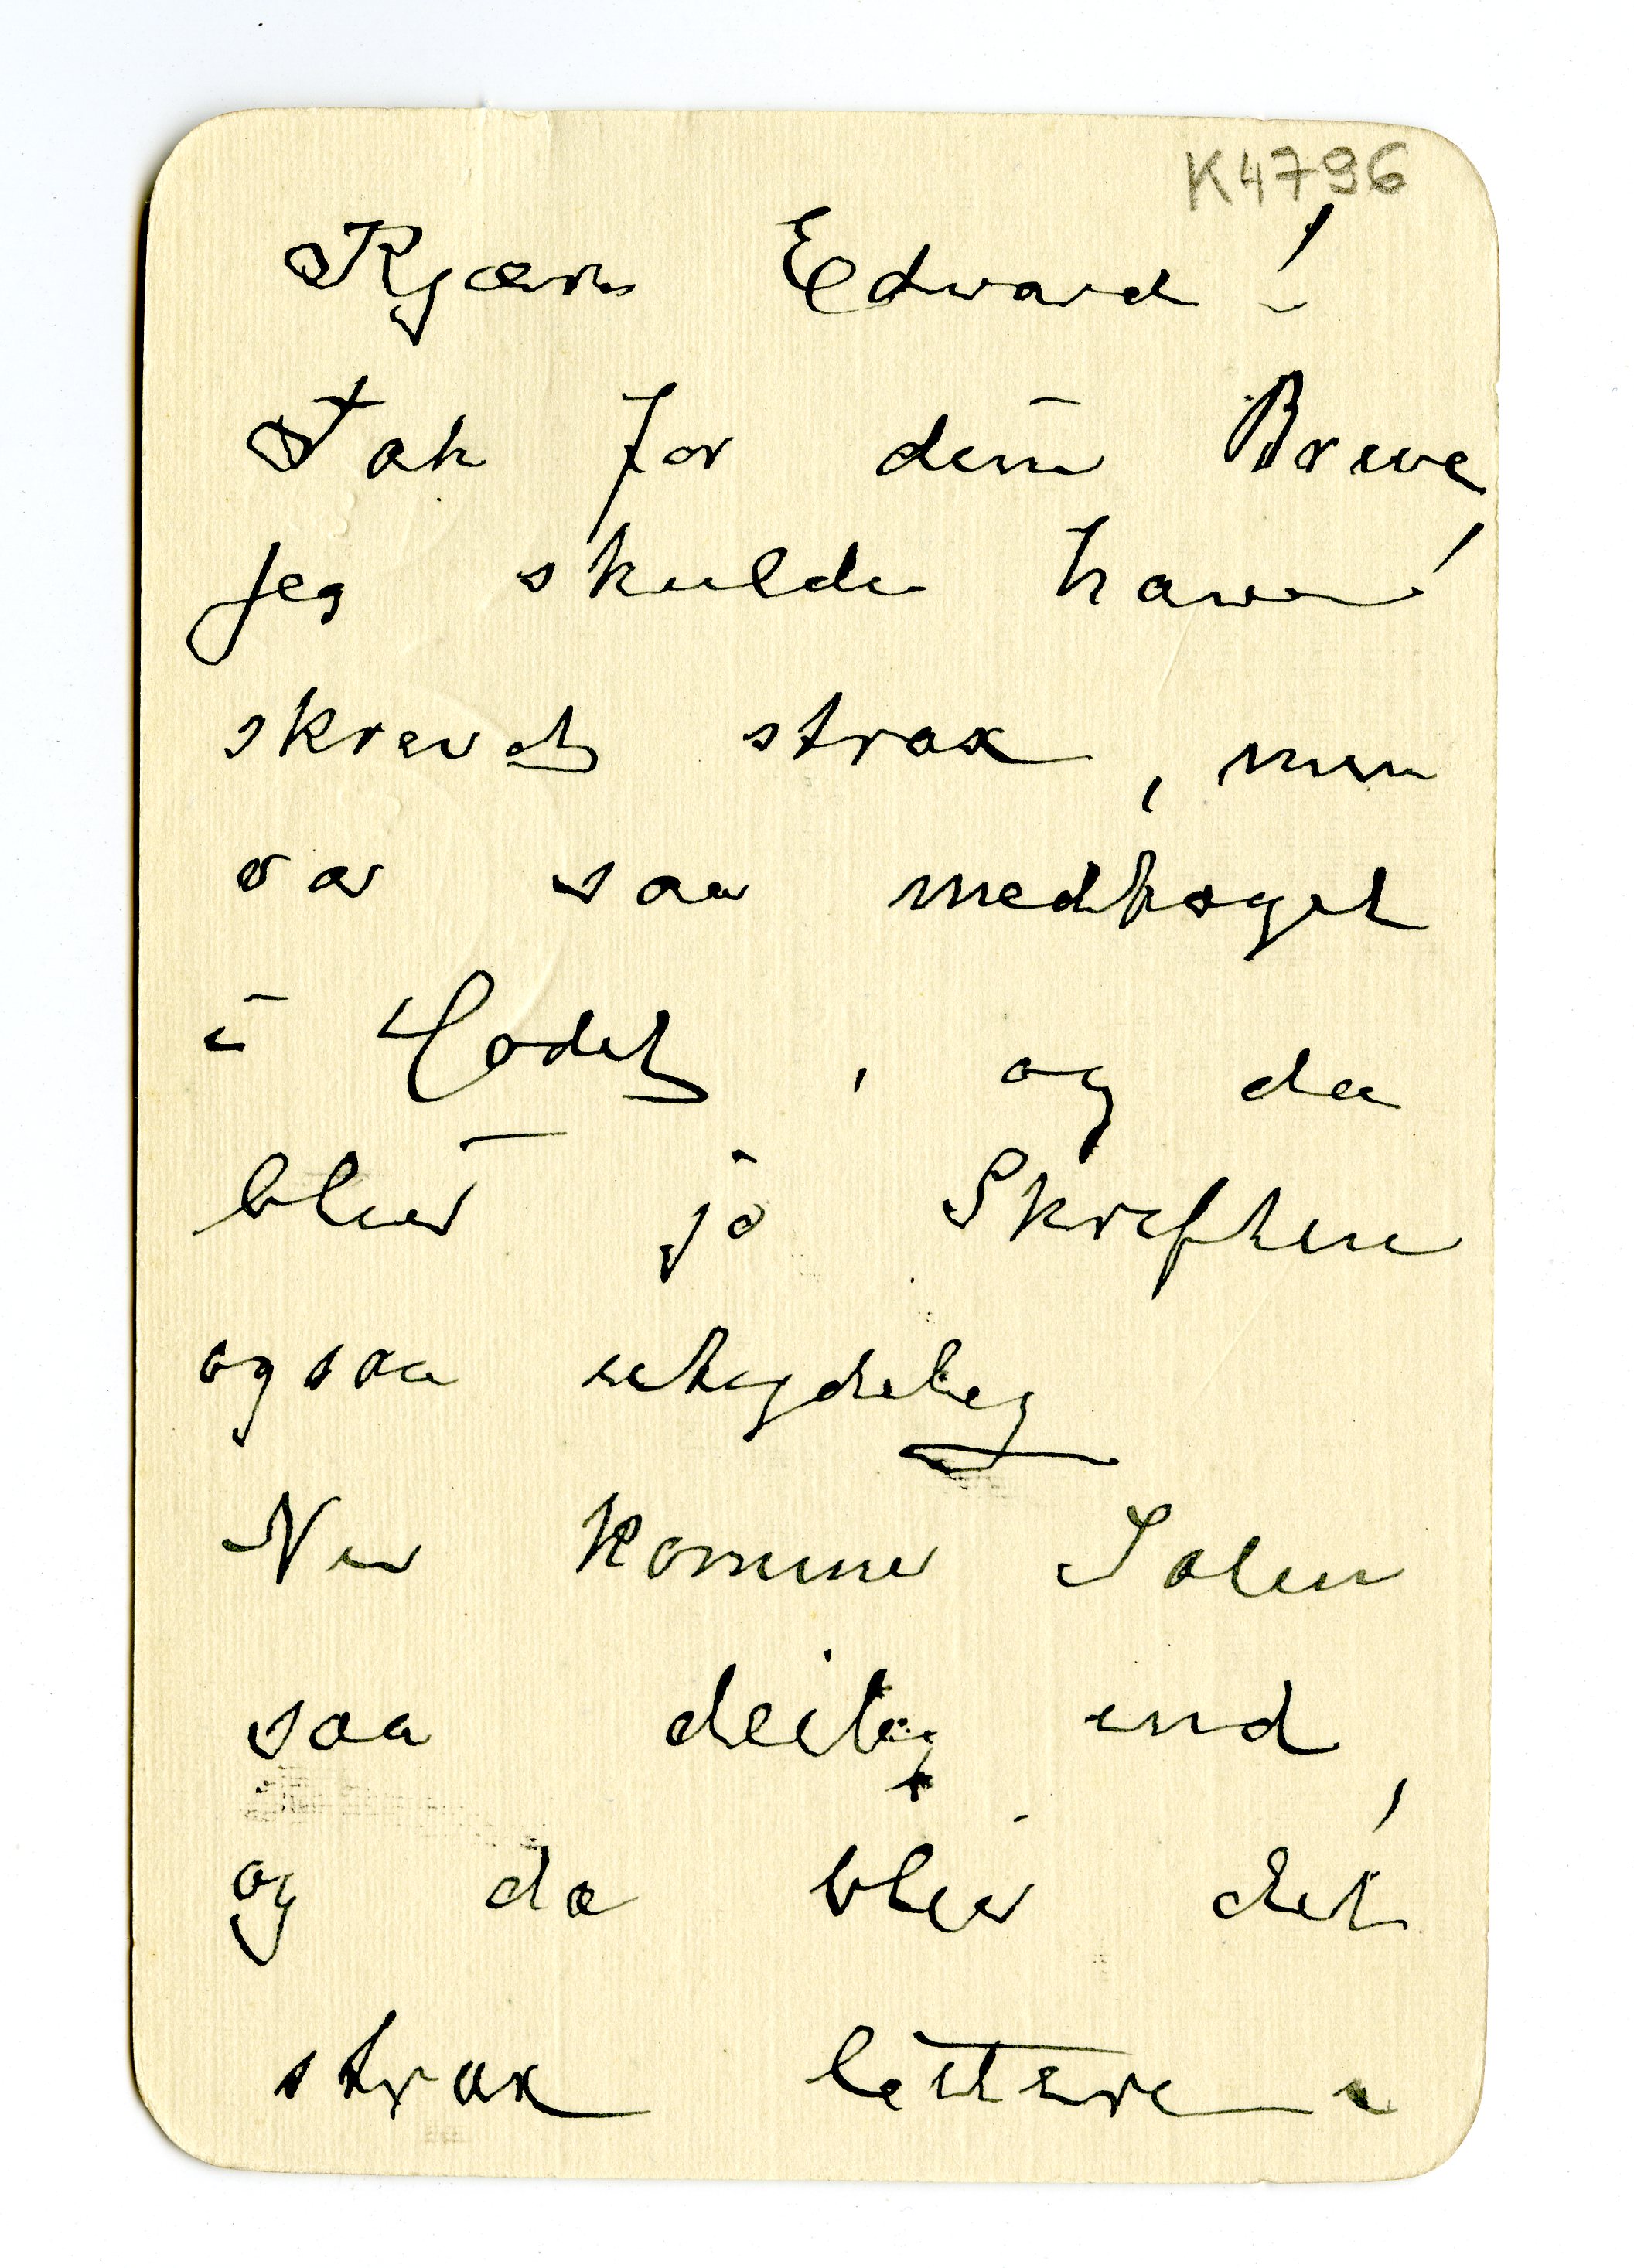 K4796
Kjære Edvard!
Tak for dine Breve
Jeg skulde have
skrevet strax, men
var saa medtaget
i Hodet, og da
bliver jo Skriften
ogsaa utydelig
Nu kommer Solen
saa deilig ind,
og da bliver det
strax lettere i